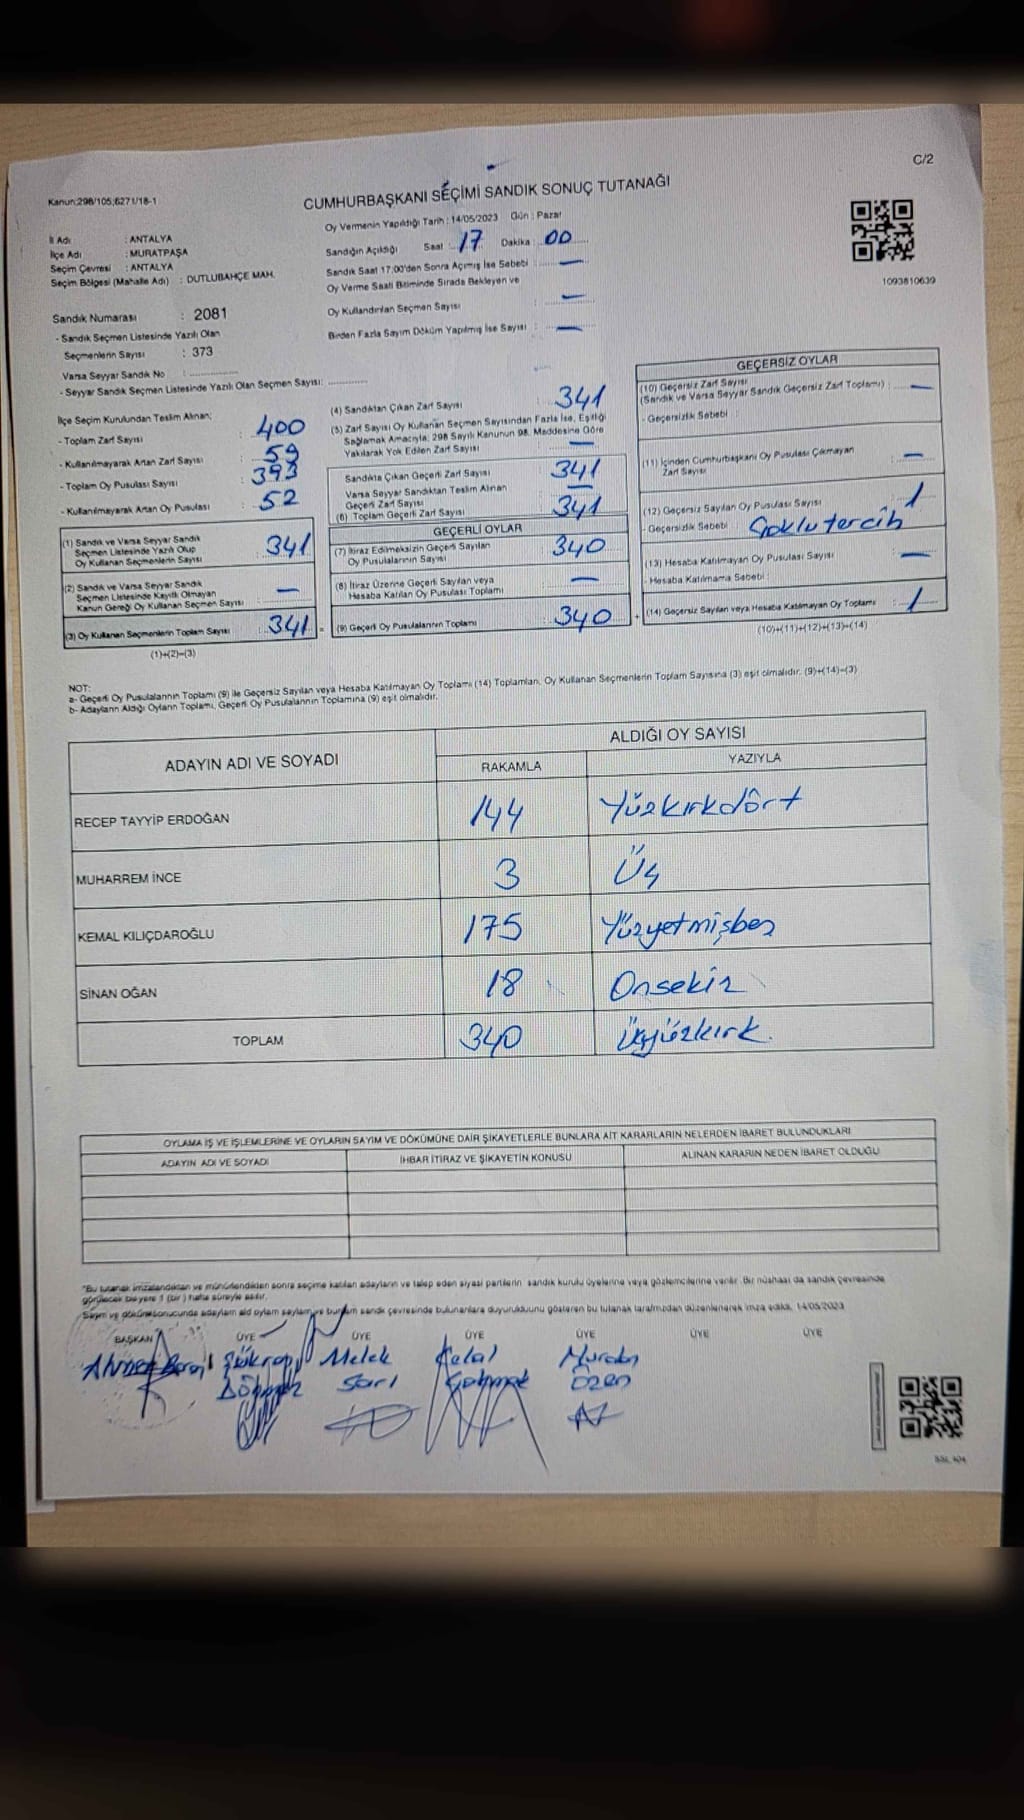 C/2
Kanun;298/105;6271/18-1
CUMHURBAŞKANI SEÇİMİ SANDIK SONUÇ TUTANAĞI
İl Adı : ANTALYA
İlçe Adı : MURATPAŞA
Seçim Çevresi : ANTALYA
Seçim Bölgesi (Mahalle Adı) : DUTLUBAHÇE MAH.
Sandık Numarası : 2081
- Sandık Seçmen Listesinde Yazılı Olan
Seçmenlerin Sayısı : 373
Varsa Seyyar Sandık No : ..............
- Seyyar Sandık Seçmen Listesinde Yazılı Olan Seçmen Sayısı: ............
Oy Vermenin Yapıldığı Tarih : 14/05/2023 Gün : Pazar
Sandığın Açıldığı Saat : 17 Dakika : 00
Sandık Saat 17:00'den Sonra Açılmış İse Sebebi : —
Oy Verme Saati Bitiminde Sırada Bekleyen ve
Oy Kullandırılan Seçmen Sayısı : —
Birden Fazla Sayım Döküm Yapılmış İse Sayısı : —
1093810639
İlçe Seçim Kurulundan Teslim Alınan;
- Toplam Zarf Sayısı : 400
- Kullanılmayarak Artan Zarf Sayısı : 59
- Toplam Oy Pusulası Sayısı : 393
- Kullanılmayarak Artan Oy Pusulası : 52
(1) Sandık ve Varsa Seyyar Sandık
Seçmen Listesinde Yazılı Olup
Oy Kullanan Seçmenlerin Sayısı : 341
(2) Sandık ve Varsa Seyyar Sandık
Seçmen Listesinde Kayıtlı Olmayan
Kanun Gereği Oy Kullanan Seçmen Sayısı : —
(3) Oy Kullanan Seçmenlerin Toplam Sayısı : 341
(1)+(2)=(3)
(4) Sandıktan Çıkan Zarf Sayısı : 341
(5) Zarf Sayısı Oy Kullanan Seçmen Sayısından Fazla İse, Eşitliği
Sağlamak Amacıyla; 298 Sayılı Kanunun 98. Maddesine Göre
Yakılarak Yok Edilen Zarf Sayısı : —
Sandıkta Çıkan Geçerli Zarf Sayısı : 341
Varsa Seyyar Sandıktan Teslim Alınan
Geçerli Zarf Sayısı : —
(6) Toplam Geçerli Zarf Sayısı : 341
GEÇERLİ OYLAR
(7) İtiraz Edilmeksizin Geçerli Sayılan
Oy Pusulalarının Sayısı : 340
(8) İtiraz Üzerine Geçerli Sayılan veya
Hesaba Katılan Oy Pusulası Toplamı : —
(9) Geçerli Oy Pusulalarının Toplamı : 340
GEÇERSİZ OYLAR
(10) Geçersiz Zarf Sayısı
(Sandık ve Varsa Seyyar Sandık Geçersiz Zarf Toplamı) : —
- Geçersizlik Sebebi :
(11) İçinden Cumhurbaşkanı Oy Pusulası Çıkmayan
Zarf Sayısı : —
(12) Geçersiz Sayılan Oy Pusulası Sayısı : 1
- Geçersizlik Sebebi : Çoklu tercih
(13) Hesaba Katılmayan Oy Pusulası Sayısı : —
- Hesaba Katılmama Sebebi :
(14) Geçersiz Sayılan veya Hesaba Katılmayan Oy Toplamı : 1
(10)+(11)+(12)+(13)=(14)
NOT:
a- Geçerli Oy Pusulalarının Toplamı (9) ile Geçersiz Sayılan veya Hesaba Katılmayan Oy Toplamı (14) Toplamları, Oy Kullanan Seçmenlerin Toplam Sayısına (3) eşit olmalıdır. (9)+(14)=(3)
b- Adayların Aldığı Oyların Toplamı, Geçerli Oy Pusulalarının Toplamına (9) eşit olmalıdır.
ADAYIN ADI VE SOYADI ALDIĞI OY SAYISI
RAKAMLA YAZIYLA
RECEP TAYYİP ERDOĞAN 144 Yüzkırkdört
MUHARREM İNCE 3 Üç
KEMAL KILIÇDAROĞLU 175 Yüzyetmişbeş
SİNAN OĞAN 18 Onsekiz
TOPLAM 340 Üçyüzkırk.
OYLAMA İŞ VE İŞLEMLERİNE VE OYLARIN SAYIM VE DÖKÜMÜNE DAİR ŞİKAYETLERLE BUNLARA AİT KARARLARIN NELERDEN İBARET BULUNDUKLARI
ADAYIN ADI VE SOYADI İHBAR İTİRAZ VE ŞİKAYETİN KONUSU ALINAN KARARIN NEDEN İBARET OLDUĞU
*Bu tutanak imzalandıktan ve mühürlendikten sonra seçime katılan adayların ve talep eden siyasi partilerin sandık kurulu üyelerine veya gözlemcilerine verilir. Bir nüshası da sandık çevresinde
görülecek bir yere 1 (bir) hafta süreyle asılır.
14/05/2023
BAŞKAN ÜYE ÜYE ÜYE ÜYE ÜYE ÜYE
Ahmet Melek Celal
Sarı Özen